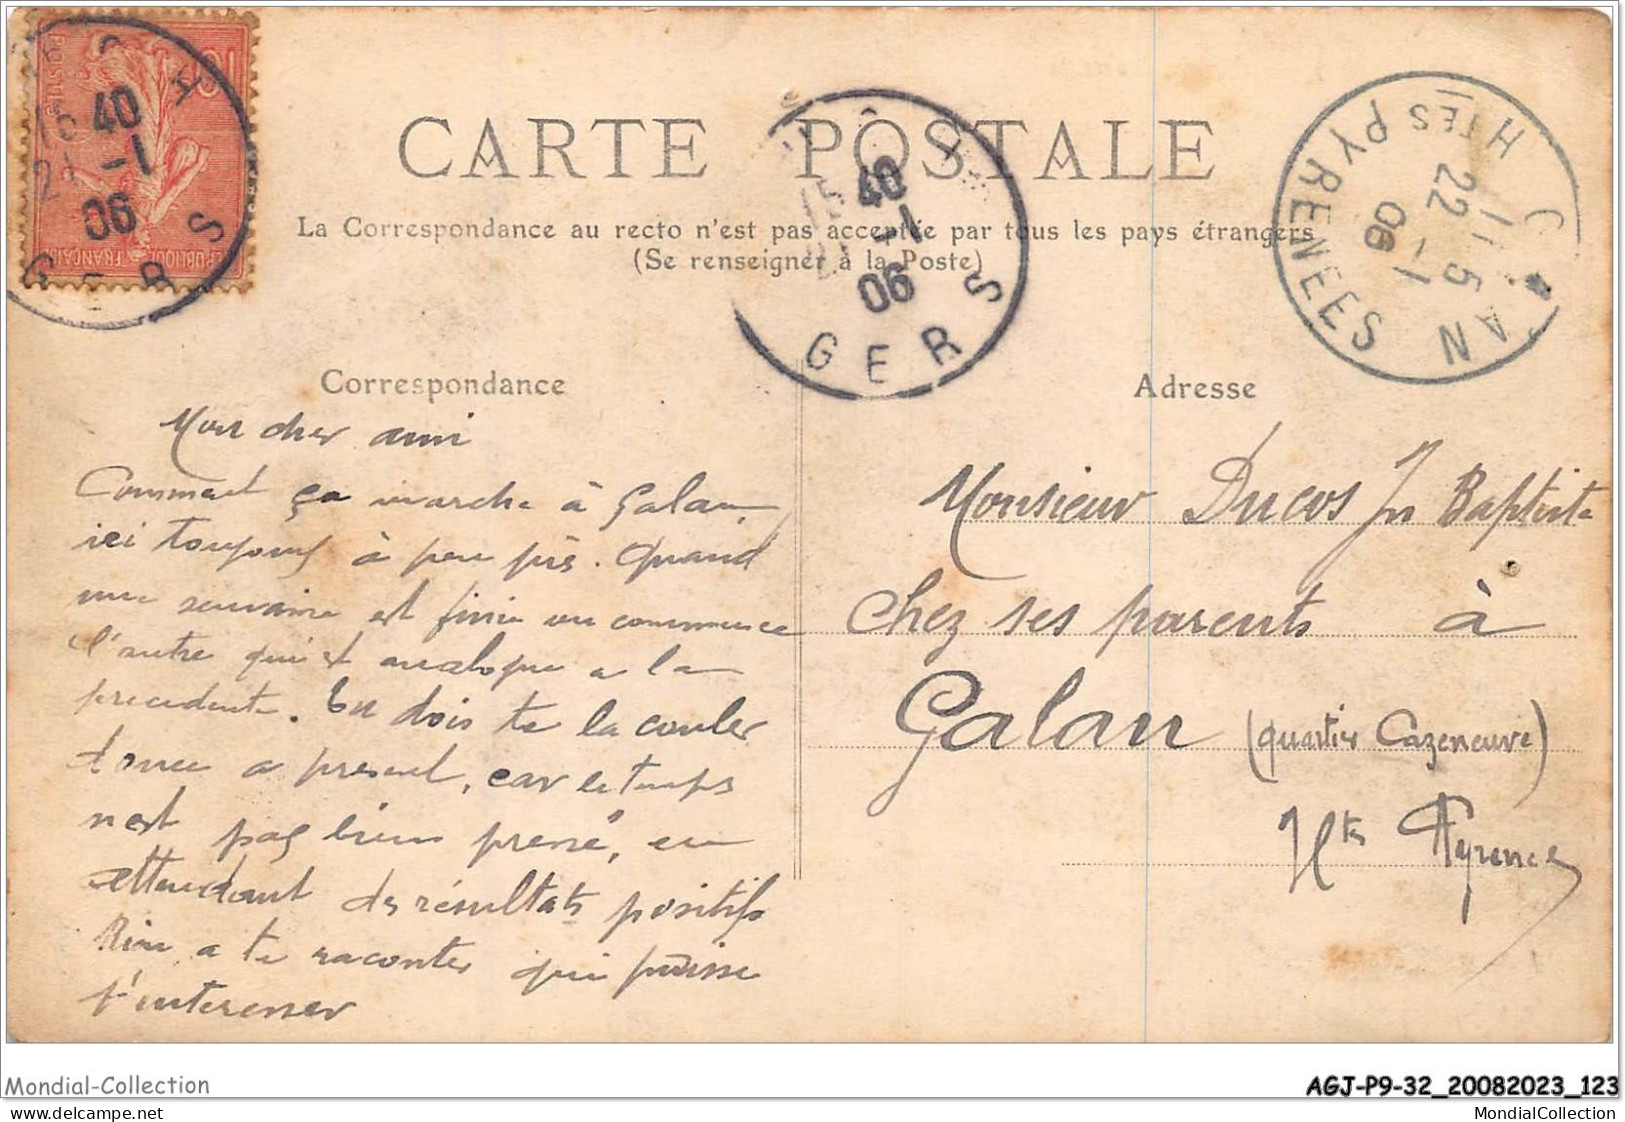 CARTE POSTALE
La Correspondance au recto n'est pas acceptée par tous les pays étrangers
(Se renseigner à la Poste)
15 40
21 -1
06
GERS
POSTES
10
REPUBLIQUE FRANÇAISE
15 40
-1
06
GERS
HTES PYRENEES
22 -1
06
Correspondance
Mon cher ami
Comment ça marche à Galan,
ici toujours à peu près. Quand
une semaine est finie on commence
l'autre qui est analogue a la
precedente. Tu dois te la couler
douce a present, car le temps
n'est pas bien pressé, en
attendant des résultats positifs
Rien a te raconter qui puisse
t'interesser
Adresse
Monsieur Ducos Jn Baptiste
Chez ses parents à
Galan (quartier Cazeneuve)
Htes Pyrenees
Mondial-Collection
AGJ-P9-32_20082023_123
MondialCollection